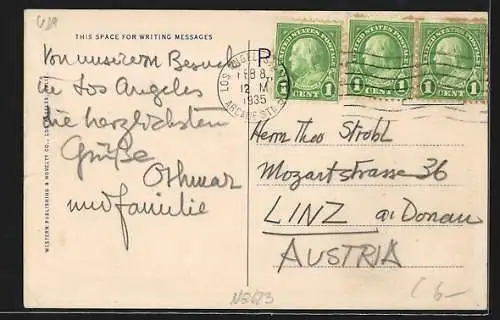 USA
THIS SPACE FOR WRITING MESSAGES
Von unserem Besuch
in Los Angeles
die herzlichsten
Grüße
Othmar
und Familie
WESTERN PUBLISHING & NOVELTY CO., LOS ANGELES, CALIF.
P
LOS ANGELES
FEB 8
12 M
1935
ARCADE STA.
UNITED STATES POSTAGE
1 CENT 1
UNITED STATES POSTAGE
1 CENT 1
UNITED STATES POSTAGE
1 CENT 1
Herrn Theo Strobl
Mozartstrasse 36
LINZ a/Donau
AUSTRIA